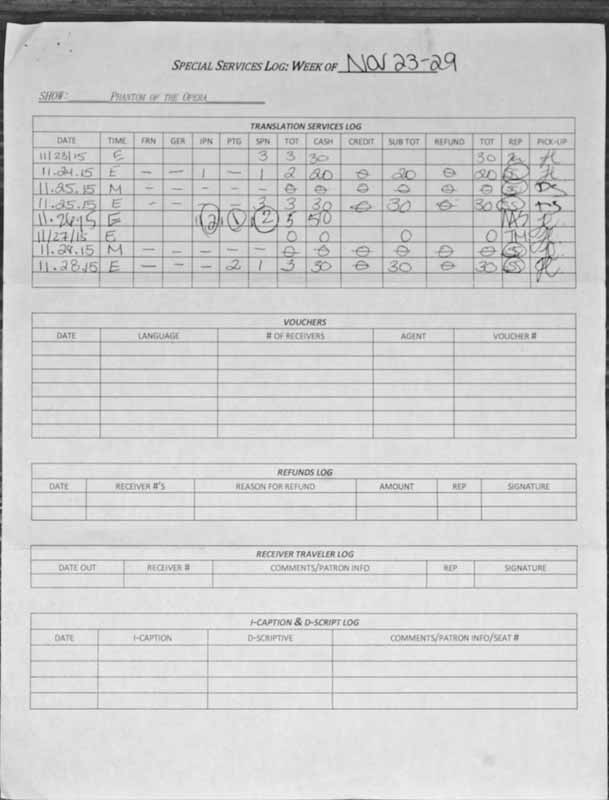 SPECIAL SERVICES LOG: WEEK OF Nov 23-29
SHOW: PHANTOM OF THE OPERA
TRANSLATION SERVICES LOG
DATE TIME FRN GER IPN PTG SPN TOT CASH CREDIT SUB TOT REFUND TOT REP PICK-UP
11/23/15 E 3 3 30 30
11.24.15 E — — 1 — 1 2 20 0 20 0 20 SS
11.25.15 M — — — — — 0 0 0 0 0 0 SS DS
11.25.15 E — — — — 3 3 30 0 30 0 30 SS DS
11.26.15 E 2 1 2 5 50 MS
11/27/15 E 0 0 0 0 TM
11.28.15 M — — — — — 0 0 0 0 0 0 SS
11.28.15 E — — — 2 1 3 30 0 30 0 30 SS
VOUCHERS
DATE LANGUAGE # OF RECEIVERS AGENT VOUCHER #
REFUNDS LOG
DATE RECEIVER #'S REASON FOR REFUND AMOUNT REP SIGNATURE
RECEIVER TRAVELER LOG
DATE OUT RECEIVER # COMMENTS/PATRON INFO REP SIGNATURE
I-CAPTION & D-SCRIPT LOG
DATE I-CAPTION D-SCRIPTIVE COMMENTS/PATRON INFO/SEAT #